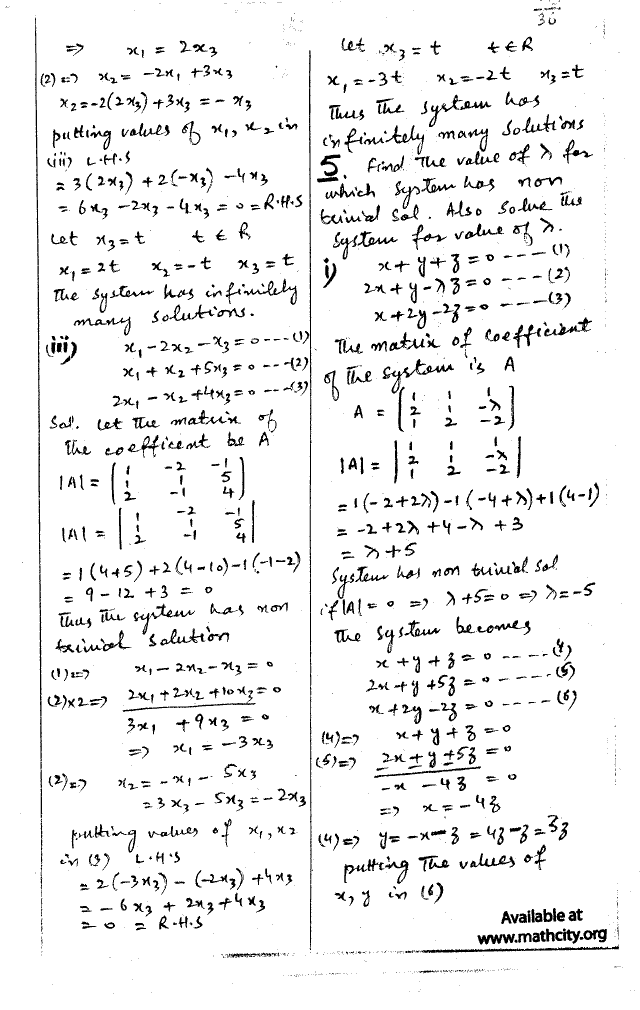 ⇒ x₁ = 2x₃
(2) ⇒ x₂ = -2x₁ + 3x₃
x₂ = -2(2x₃) + 3x₃ = - x₃
putting values of x₁, x₂ in
(iii) L.H.S
= 3(2x₃) + 2(-x₃) - 4x₃
= 6x₃ - 2x₃ - 4x₃ = 0 = R.H.S
Let x₃ = t t ∈ R
x₁ = 2t x₂ = -t x₃ = t
The system has infinitely
many solutions.
(iii) x₁ - 2x₂ - x₃ = 0 ---(1)
x₁ + x₂ + 5x₃ = 0 ---(2)
2x₁ - x₂ + 4x₃ = 0 ---(3)
Sol. Let the matrix of
the coefficent be A
|A| = [1 -2 -1
1 1 5
2 -1 4]
|A| = |1 -2 -1
1 1 5
2 -1 4|
= 1(4+5) + 2(4-10) - 1(-1-2)
= 9 - 12 + 3 = 0
Thus the system has non
trivial solution
(1) ⇒ x₁ - 2x₂ - x₃ = 0
(2)×2 ⇒ 2x₁ + 2x₂ + 10x₃ = 0
3x₁ + 9x₃ = 0
⇒ x₁ = -3x₃
(2) ⇒ x₂ = -x₁ - 5x₃
= 3x₃ - 5x₃ = -2x₃
putting values of x₁, x₂
in (3) L.H.S
= 2(-3x₃) - (-2x₃) + 4x₃
= -6x₃ + 2x₃ + 4x₃
= 0 = R.H.S
36
Let x₃ = t t ∈ R
x₁ = -3t x₂ = -2t x₃ = t
Thus the system has
infinitely many solutions
5. Find the value of λ for
which system has non
trivial sol. Also solve the
system for value of λ.
i) x + y + z = 0 ---(1)
2x + y - λz = 0 ---(2)
x + 2y - 2z = 0 ---(3)
The matrix of coefficient
of the system is A
A = [1 1 1
2 1 -λ
1 2 -2]
|A| = |1 1 1
2 1 -λ
1 2 -2|
= 1(-2+2λ) - 1(-4+λ) + 1(4-1)
= -2 + 2λ + 4 - λ + 3
= λ + 5
System has non trivial sol
if |A| = 0 ⇒ λ + 5 = 0 ⇒ λ = -5
The system becomes
x + y + z = 0 ---(4)
2x + y + 5z = 0 ---(5)
x + 2y - 2z = 0 ---(6)
(4) ⇒ x + y + z = 0
(5) ⇒ 2x ± y ± 5z = 0
-x - 4z = 0
⇒ x = -4z
(4) ⇒ y = -x - z = 4z - z = 3z
putting the values of
x, y in (6)
Available at
www.mathcity.org